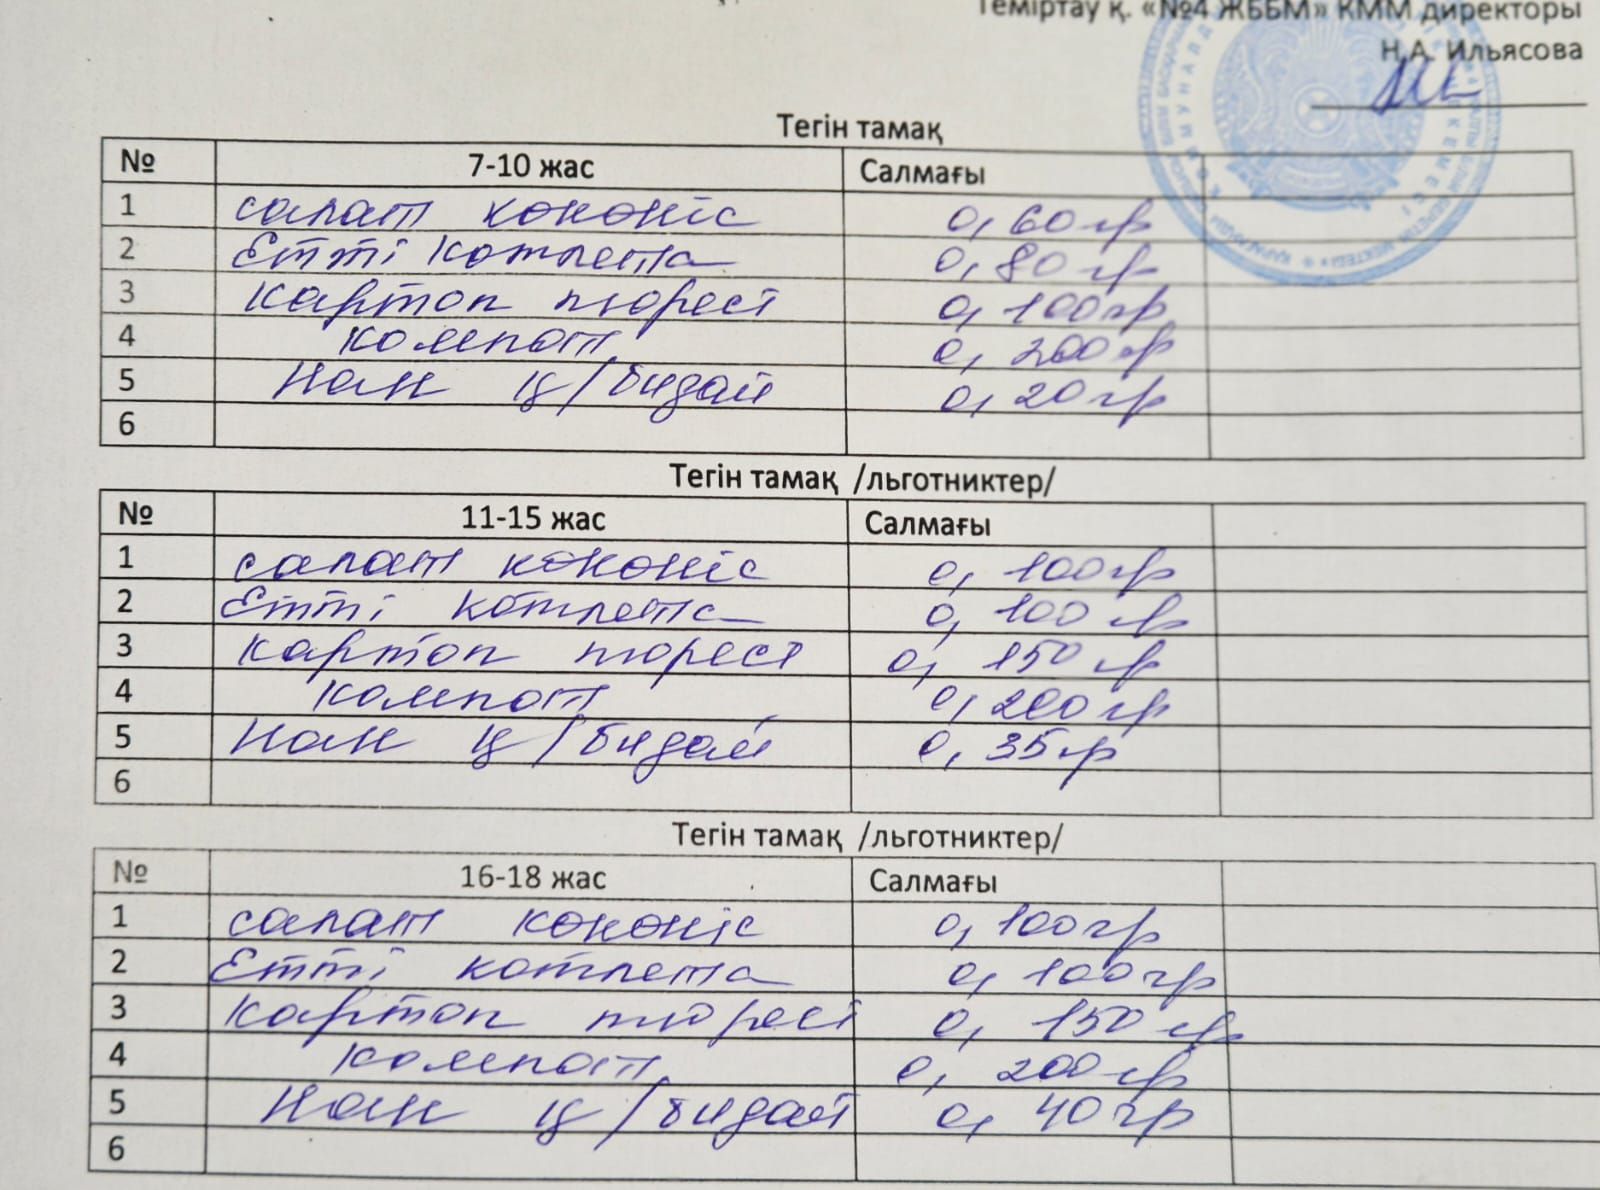 Теміртау қ. «№4 ЖББМ» КММ директоры
Н.А. Ильясова
Тегін тамақ
№ 7-10 жас Салмағы
1 салат көкөніс 0,60гр
2 Етті котлета 0,80гр
3 картоп пюресі 0,100гр
4 компот 0,200гр
5 Нан ц/бидай 0,20гр
6
Тегін тамақ /льготниктер/
№ 11-15 жас Салмағы
1 салат көкөніс 0,100гр
2 Етті котлета 0,100гр
3 картоп пюресі 0,150гр
4 компот 0,200гр
5 Нан ц/бидай 0,35гр
6
Тегін тамақ /льготниктер/
№ 16-18 жас Салмағы
1 салат көкөніс 0,100гр
2 Етті котлета 0,100гр
3 картоп пюресі 0,150гр
4 компот 0,200гр
5 Нан ц/бидай 0,40гр
6